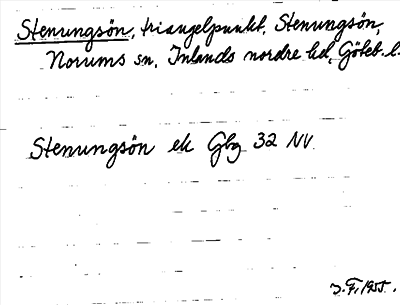 Stenungsön, triangelpunkt, Stenungsön,
Norums sn, Inlands nordre hd, Göteb. l.
Stenungsön ek Gbg 32 NV
J. F. 1955.